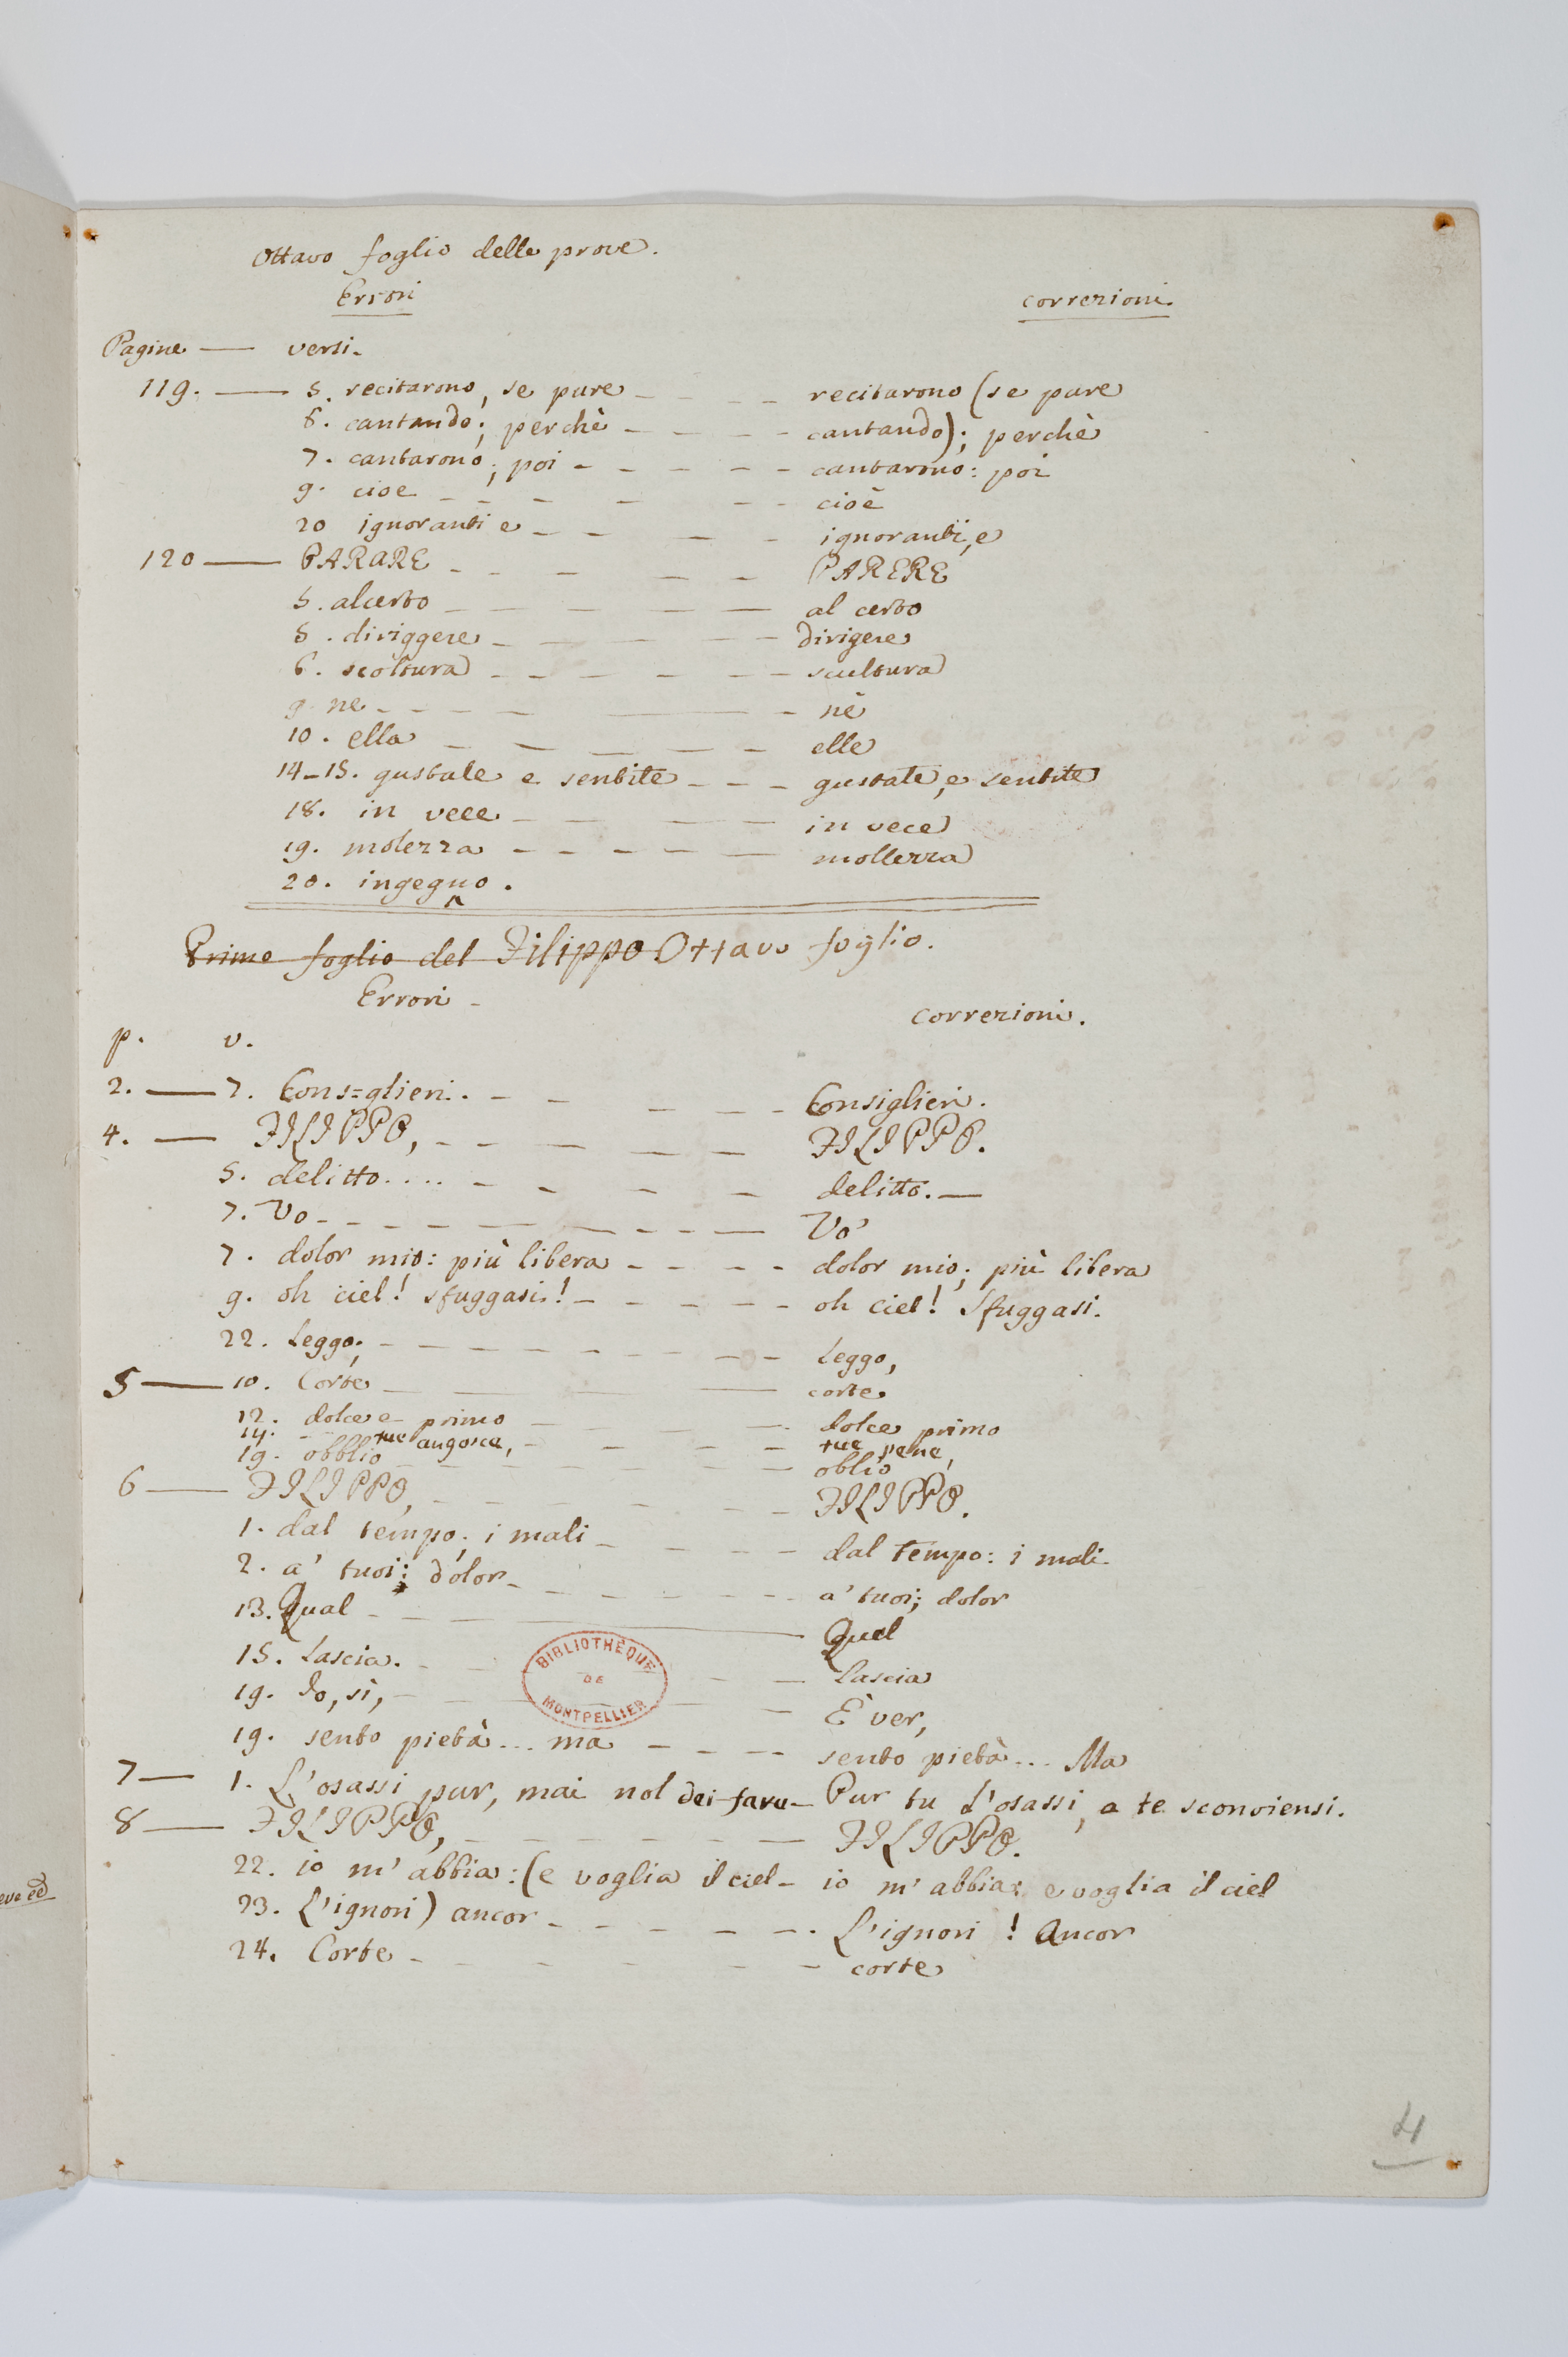 Ottavo foglio delle prove.
Errori correzioni.
Pagine — versi.
119. — 5. recitarono, se pure - - - recitarono (se pure
6. cantando; perchè - - - - cantando); perchè
7. cantarono; poi - - - - - cantarono: poi
9. cioe - - - - - - cioè
20 ignoranti e - - - - ignoranti, e
120 — PARARE - - - - - PARERE
5. alcerto - - - - - - al certo
5. diriggere - - - - - dirigere
6. scoltura - - - - - - scultura
9 ne - - - - - - nè
10. ella - - - - - - elle
14-15. gustate e sentite - - - gustate, e sentite
18. in vece - - - - in vece
19. molezza - - - - - mollezza
20. ingegno.
Primo foglio del Filippo Ottavo foglio.
Errori -
correzioni.
p. v.
2. — 7. Cons=glieri. - - - - - Consiglieri.
4. — FILIPPO, - - - - - FILIPPO.
5. delitto.... - - - - delitto. —
7. Vo - - - - - - - - - Vo'
7. dolor mio: più libera - - - - dolor mio; più libera
9. oh ciel! sfuggasi! - - - - - oh ciel! Sfuggasi.
22. Leggo; - - - - - - - - - Leggo,
5 — 10. Corte - - - corte
12. dolce e primo - - - dolce primo
14. - - tue angosce, - - - - tue pene,
19. obblio - - - - - - oblio
6 — FILIPPO, - - - - - FILIPPO.
1. dal tempo; i mali - - - - dal tempo: i mali
2. a' tuoi: dolor - - - - - - a' tuoi; dolor
13. Qual - - - Quel
15. Lascia. - - - - Lascia
BIBLIOTHÈQUE
DE
MONTPELLIER
19. Io, sì, - - - - - È ver,
19. sento pietà... ma - - - - sento pietà... Ma
7 — 1. L'osassi pur, mai nol dei fare - Pur tu l'osassi, a te sconviensi.
8 — FILIPPO, - - - - - - FILIPPO.
22. io m'abbia: (e voglia il ciel - io m'abbia; e voglia il ciel
23. L'ignori) ancor - - - - - - L'ignori! Ancor
24. Corte - - - - - - corte
4